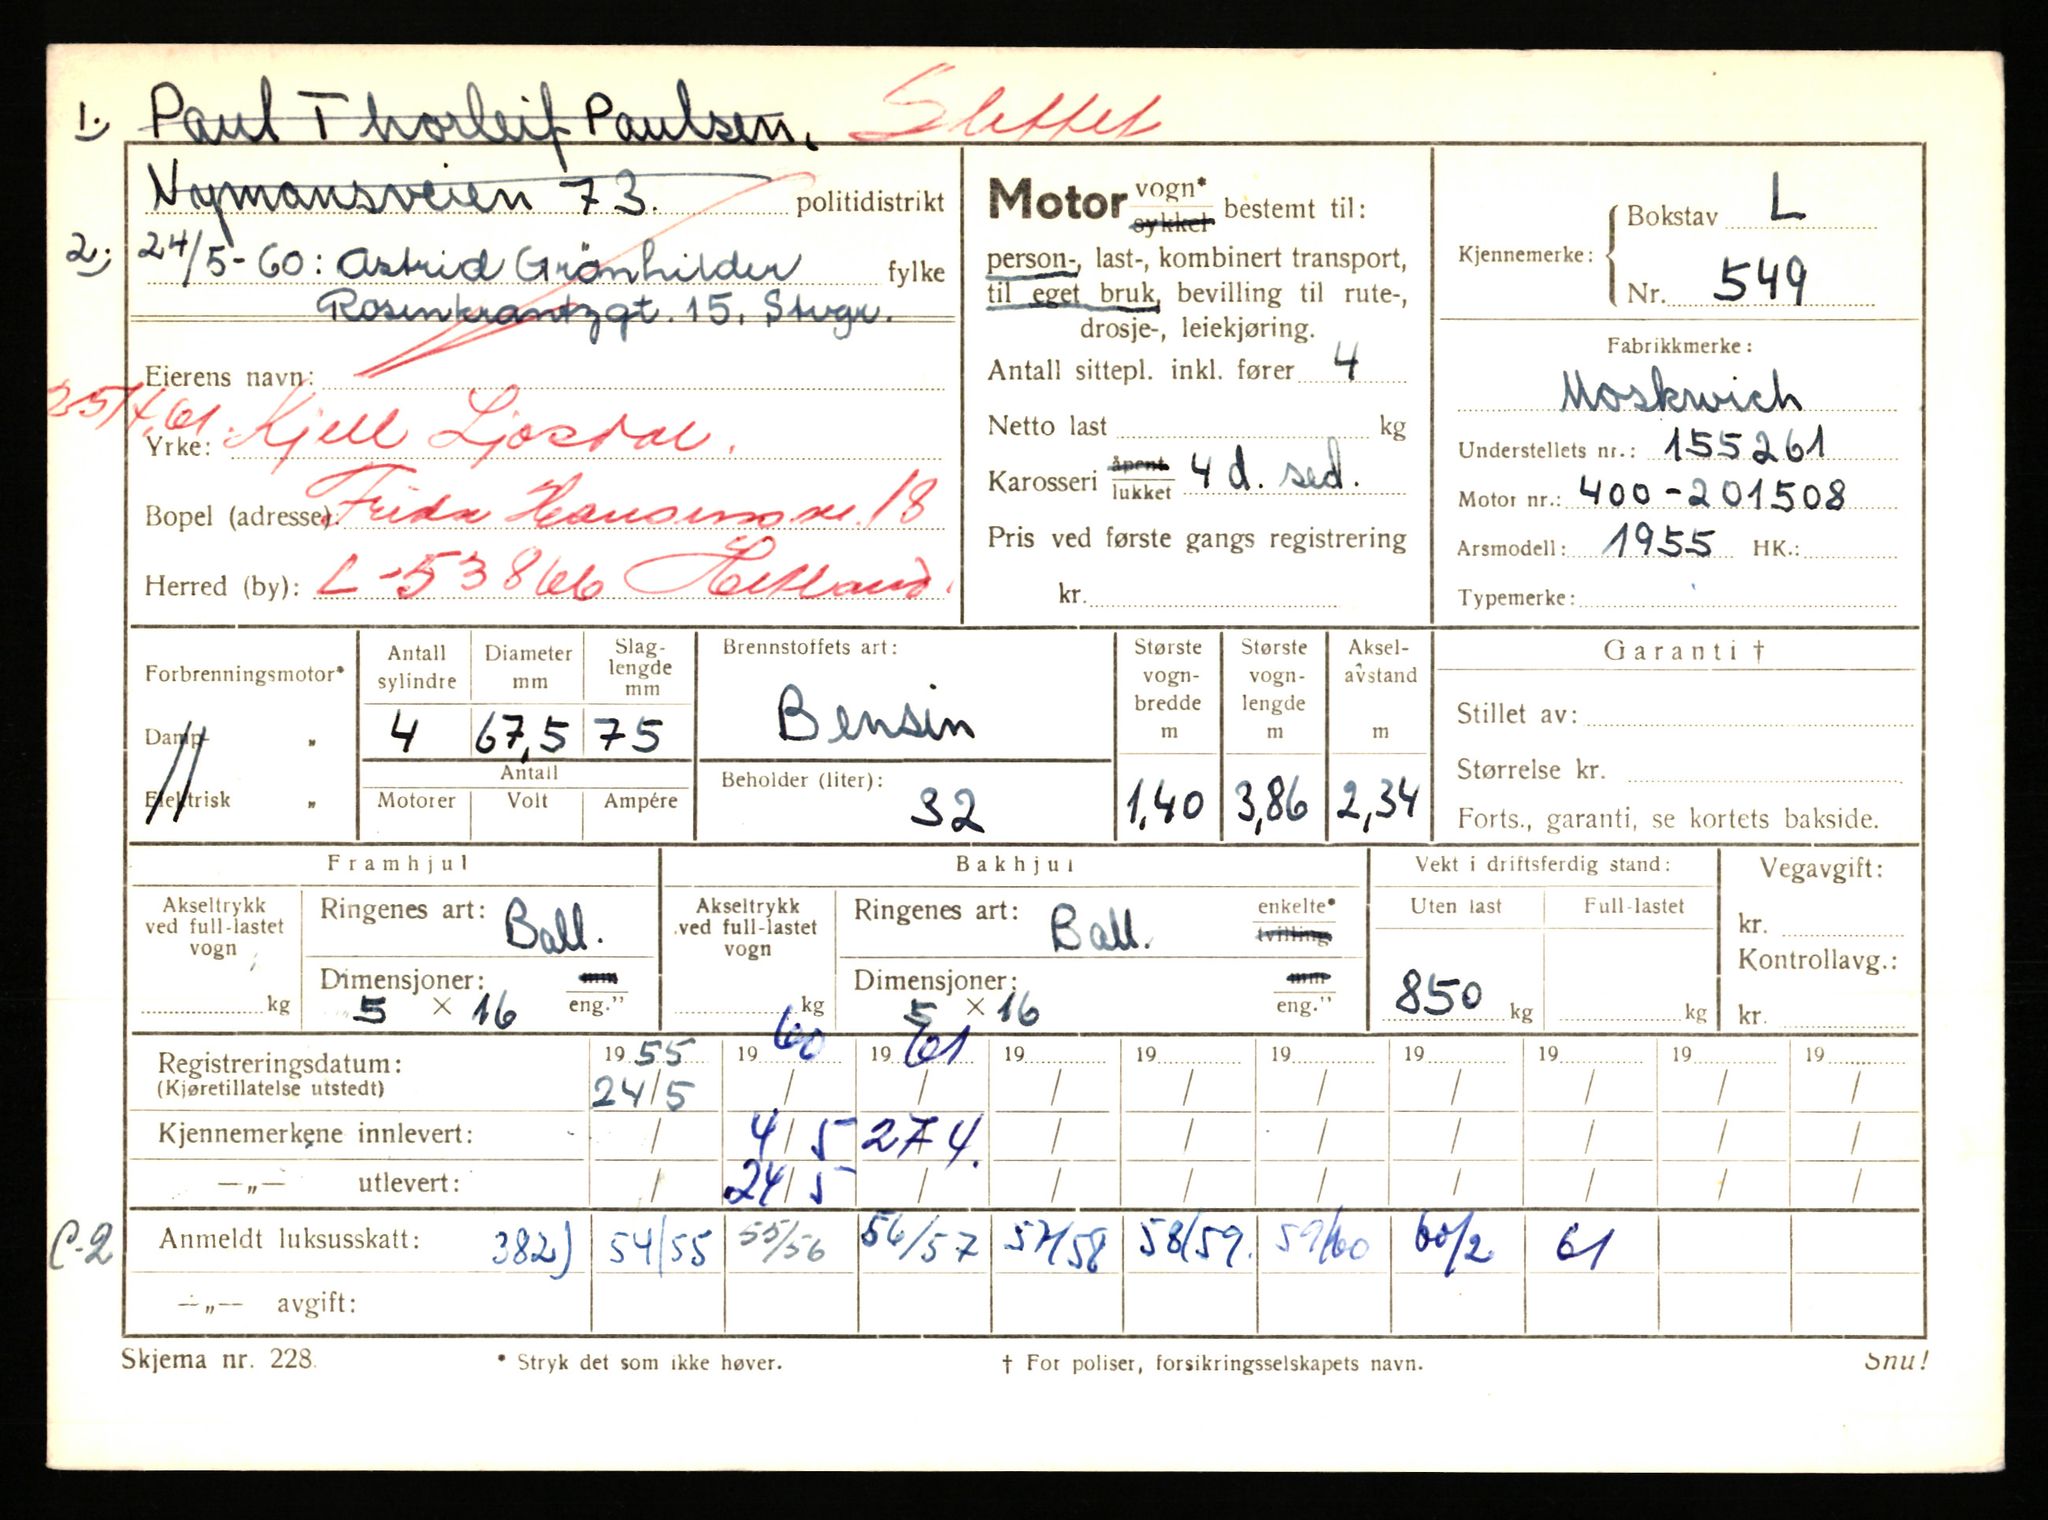 1. Paul Thorleif Paulsen. Slettet
Nymansveien 73. politidistrikt
2. 24/5-60: Astrid Grönhilder fylke
Rosenkrantzgt. 15, Stvgr.
Eierens navn:
25/4.61. Kjell Ljosdal.
Yrke:
Bopel (adresse): Frida Hansensvei 18
Herred (by): L-53866 Hetland.
Motor vogn* sykkel bestemt til:
person-, last-, kombinert transport,
til eget bruk, bevilling til rute-,
drosje-, leiekjøring.
Antall sittepl. inkl. fører 4
Netto last kg
Karosseri åpent lukket 4 d. sed.
Pris ved første gangs registrering
kr.
Kjennemerke: Bokstav L
Nr. 549
Fabrikkmerke:
Moskwich
Understellets nr.: 155261
Motor nr.: 400-201508
Arsmodell: 1955 HK.:
Typemerke:
Forbrenningsmotor*
Damp- „
Elektrisk „
Antall sylindre Diameter mm Slag-lengde mm
4 67,5 75
Antall
Motorer Volt Ampére
Brennstoffets art:
Bensin
Beholder (liter):
32
Største vogn-bredde m 1,40
Største vogn-lengde m 3,86
Aksel-avstand m 2,34
Garanti †
Stillet av:
Størrelse kr.
Forts., garanti, se kortets bakside.
Framhjul
Akseltrykk ved full-lastet vogn kg
Ringenes art: Ball.
Dimensjoner: mm
5 × 16 eng."
Bakhjul
Akseltrykk ved full-lastet vogn kg
Ringenes art: Ball. enkelte* tvilling
Dimensjoner: mm
5 × 16 eng."
Vekt i driftsferdig stand:
Uten last Full-lastet
850 kg kg
Vegavgift:
kr.
Kontrollavg.:
kr.
Registreringsdatum: 1955 1960 1961 19 19 19 19 19 19 19
(Kjøretillatelse utstedt) 24/5 / / / / / / / / /
Kjennemerkene innlevert: / 4/5 27 4. / / / / / / /
—„— utlevert: / 24/5 / / / / / / / /
C-2 Anmeldt luksusskatt: 382) 54/55 55/56 56/57 57/58 58/59. 59/60 60/2 61
—„— avgift:
Skjema nr. 228. * Stryk det som ikke høver. † For poliser, forsikringsselskapets navn. Snu!